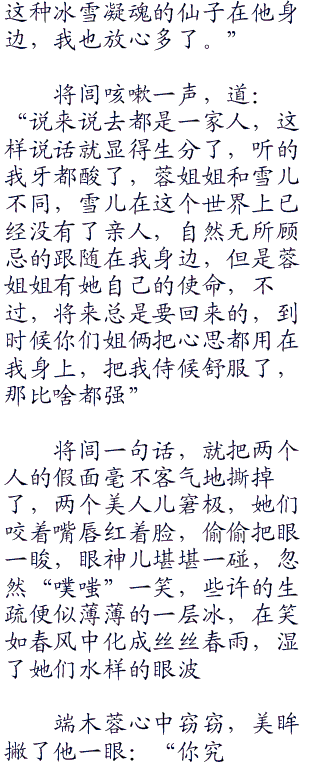 这种冰雪凝魂的仙子在他身
边，我也放心多了。”
将闾咳嗽一声，道：
“说来说去都是一家人，这
样说话就显得生分了，听的
我牙都酸了，蓉姐姐和雪儿
不同，雪儿在这个世界上已
经没有了亲人，自然无所顾
忌的跟随在我身边，但是蓉
姐姐有她自己的使命，不
过，将来总是要回来的，到
时候你们姐俩把心思都用在
我身上，把我侍候舒服了，
那比啥都强”
将闾一句话，就把两个
人的假面毫不客气地撕掉
了，两个美人儿窘极，她们
咬着嘴唇红着脸，偷偷把眼
一睃，眼神儿堪堪一碰，忽
然“噗嗤”一笑，些许的生
疏便似薄薄的一层冰，在笑
如春风中化成丝丝春雨，湿
了她们水样的眼波
端木蓉心中窃窃，美眸
撇了他一眼：“你究